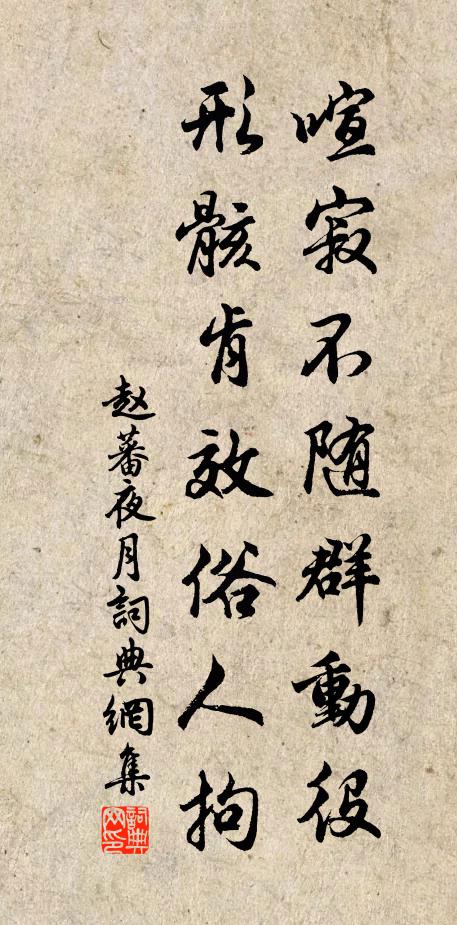 喧寂不随群動役
形骸肯效俗人拘
赵蕃夜月詞典網集
詞典网印